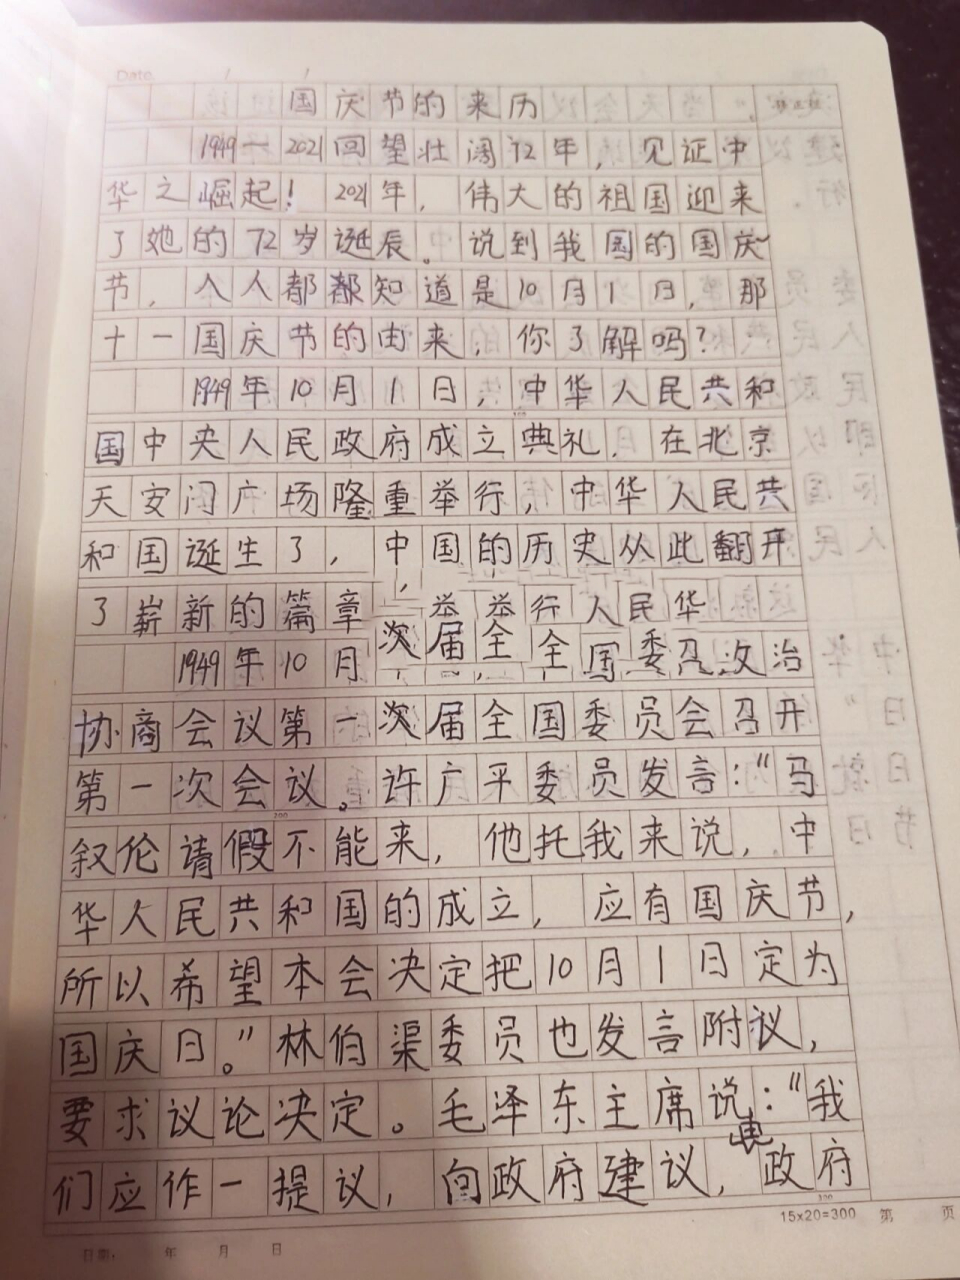 Date
国庆节的来历
1949—2021回望壮阔72年，见证中
华之崛起！2021年，伟大的祖国迎来
了她的72岁诞辰。说到我国的国庆
节，人人都都知道是10月1日，那
十一国庆节的由来，你了解吗？
1949年10月1日，中华人民共和
国中央人民政府成立典礼，在北京
天安门广场隆重举行，中华人民共
和国诞生了，中国的历史从此翻开
了崭新的篇章，举举行人民华
1949年10月次届全全国委召政治
协商会议第一次届全国委员会召开
第一次会议。许广平委员发言：“马
叙伦请假不能来，他托我来说，中
华人民共和国的成立，应有国庆节，
所以希望本会决定把10月1日定为
国庆日。”林伯渠委员也发言附议，
要求议论决定。毛泽东主席说：“我
们应作一提议，向政府建议，由政府
15×20=300 第 页
日期： 年 月 日